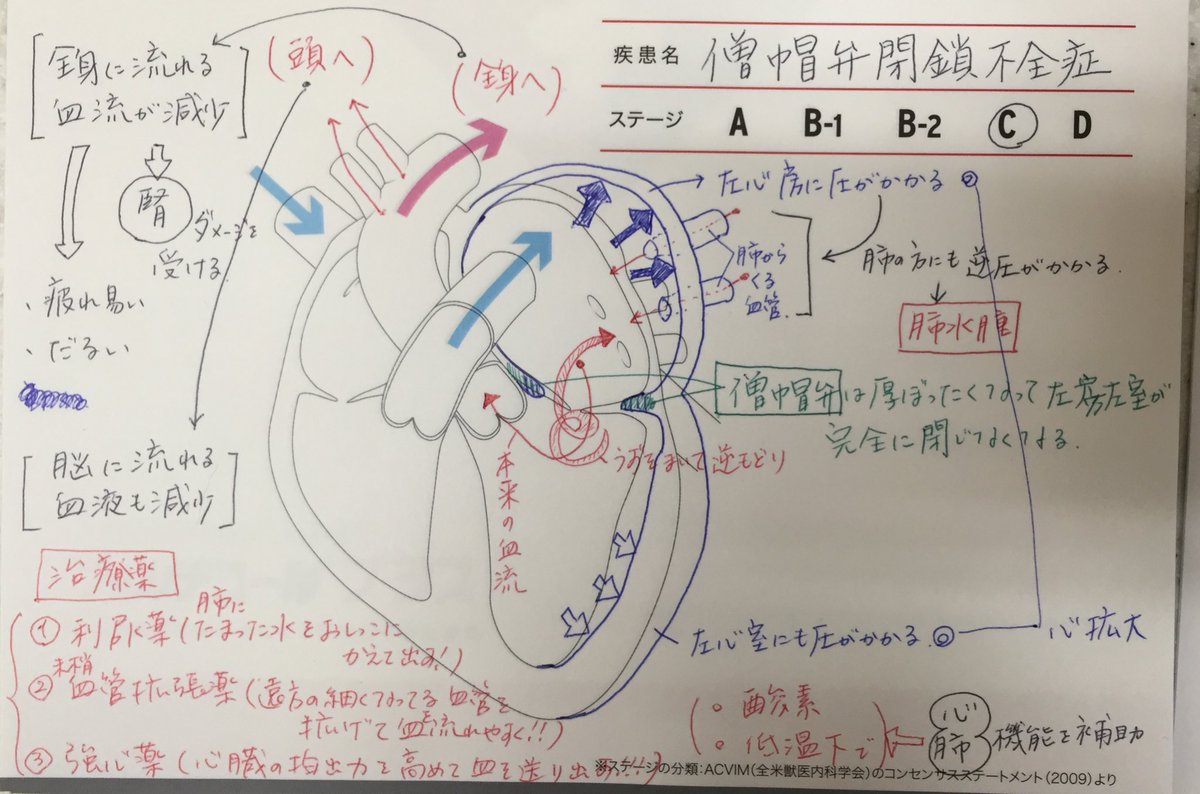 疾患名 僧帽弁閉鎖不全症
ステージ A B-1 B-2 C D
全身に流れる
血流が減少
(頭へ)
(全身へ)
腎
ダメージを
受ける
、疲れ易い
、だるい
脳に流れる
血液も減少
左心房に圧がかかる
肺から
くる
血管
肺の方にも逆圧がかかる.
肺水腫
僧帽弁は厚ぼったくなって左房左室が
完全に閉じなくなる.
うずをまいて逆もどり
本来の血流
左心室にも圧がかかる
心拡大
治療薬
① 利尿薬(肺にたまった水をおしっこに
かえて出す!)
② 末梢血管拡張薬(遠方の細くなってる血管を
拡げて血流れやすく!!)
③ 強心薬(心臓の拍出力を高めて血を送り出す!!!)
。酸素
。低温下で
心
肺
機能を補助
※ステージの分類:ACVIM(全米獣医内科学会)のコンセンサスステートメント(2009)より